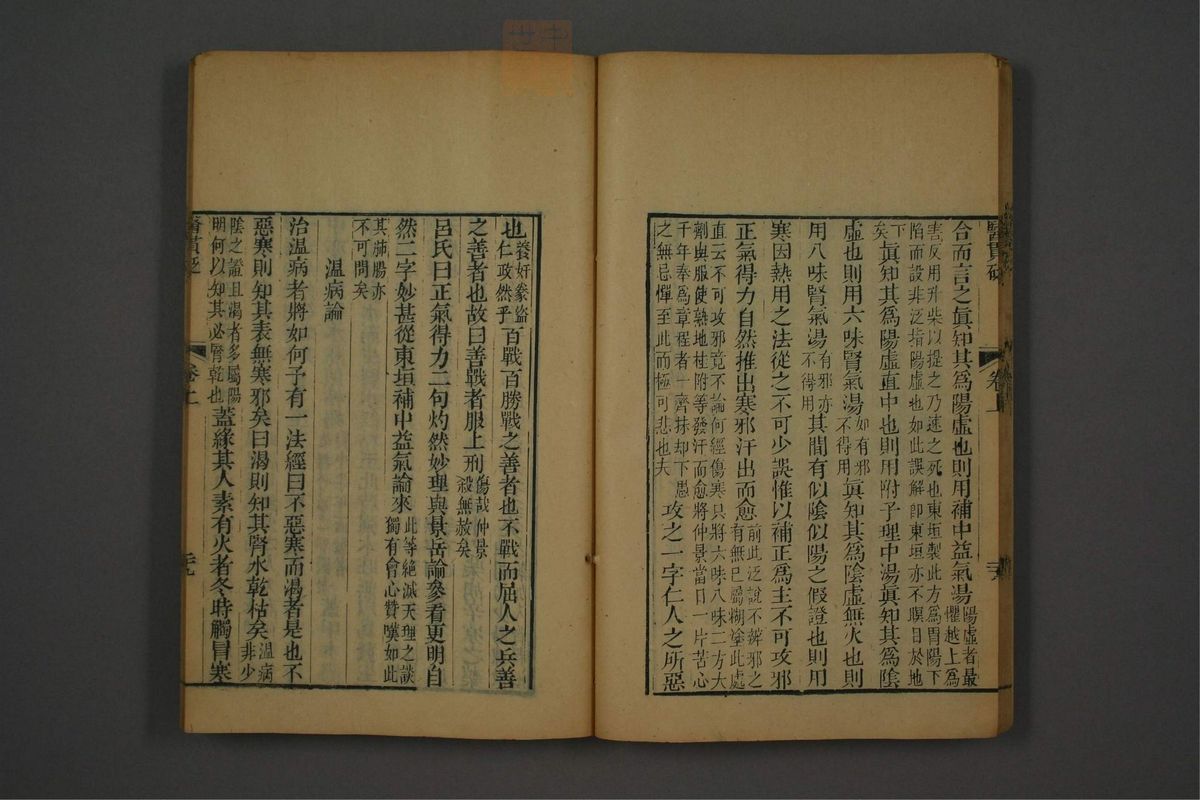 合而言之眞知其爲陽虛也則用補中益氣湯陽虛者最懼越上爲
害反用升柴以提之乃速之死也東垣製此方爲胃陽下陷而設非泛指陽虛也如此誤解卽東垣亦不瞑目於地
下矣眞知其爲陽虛直中也則用附子理中湯眞知其爲陰
虛也則用六味腎氣湯如有邪不得用眞知其爲陰虛無火也則
用八味腎氣湯有邪亦不得用其間有似陰似陽之假證也則用
寒因熱用之法從之不可少誤惟以補正爲主不可攻邪
正氣得力自然推出寒邪汗出而愈前此泛說不辨邪之有無已屬糊塗此處
直云不可攻邪竟不論何經傷寒只將六味八味二方大劑與服使熟地桂附等發汗而愈將仲景當日一片苦心
千年奉爲章程者一齊抹却下愚之無忌憚至此而極可悲也夫攻之一字仁人之所惡
醫貫砭
卷上
也養奸豢盜仁政然乎百戰百勝戰之善者也不戰而屈人之兵善
之善者也故曰善戰者服上刑傷哉仲景殺無赦矣
呂氏曰正氣得力二句灼然妙理與景岳論參看更明自
然二字妙甚從東垣補中益氣論來此等絶滅天理之談獨有會心贊嘆如此
其肺腸亦不可問矣
溫病論
治溫病者將如何予有一法經曰不惡寒而渴者是也不
惡寒則知其表無寒邪矣曰渴則知其腎水乾枯矣溫病非少
陰之證且渴者多屬陽明何以知其必腎乾也蓋緣其人素有火者冬時觸冒寒
醫貫砭
卷上